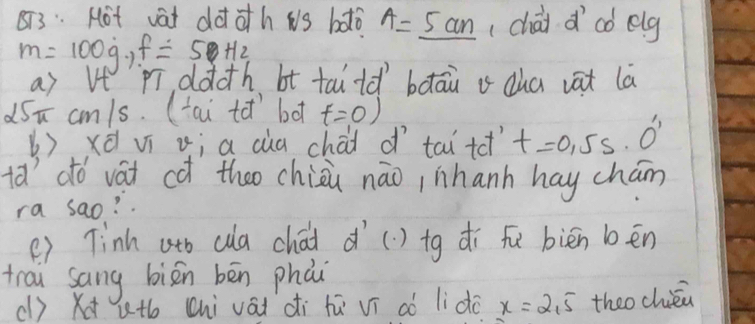 BT3: Một vật dđđh vs bđộ A = 5 cm, chất đ' có klg
m = 100g, f = 5 Hz
a) Vt PT dđđh, bt tại tđ' bđầu v của vật là
25π cm/s. (tại tđ' bđ t=0)
b) Xđ vị v; a của chất đ' tại tđ' t=0,5s. Ở
tđ' đó vật cđ theo chiều nào, nhanh hay chậm
ra sao?.
c) Tính vtb của chất đ' (.) tg đi từ biên bên
trái sang biên bên phải
d) Xđ vtb khi vật đi từ VT có li độ x = 2,5 theo chiều